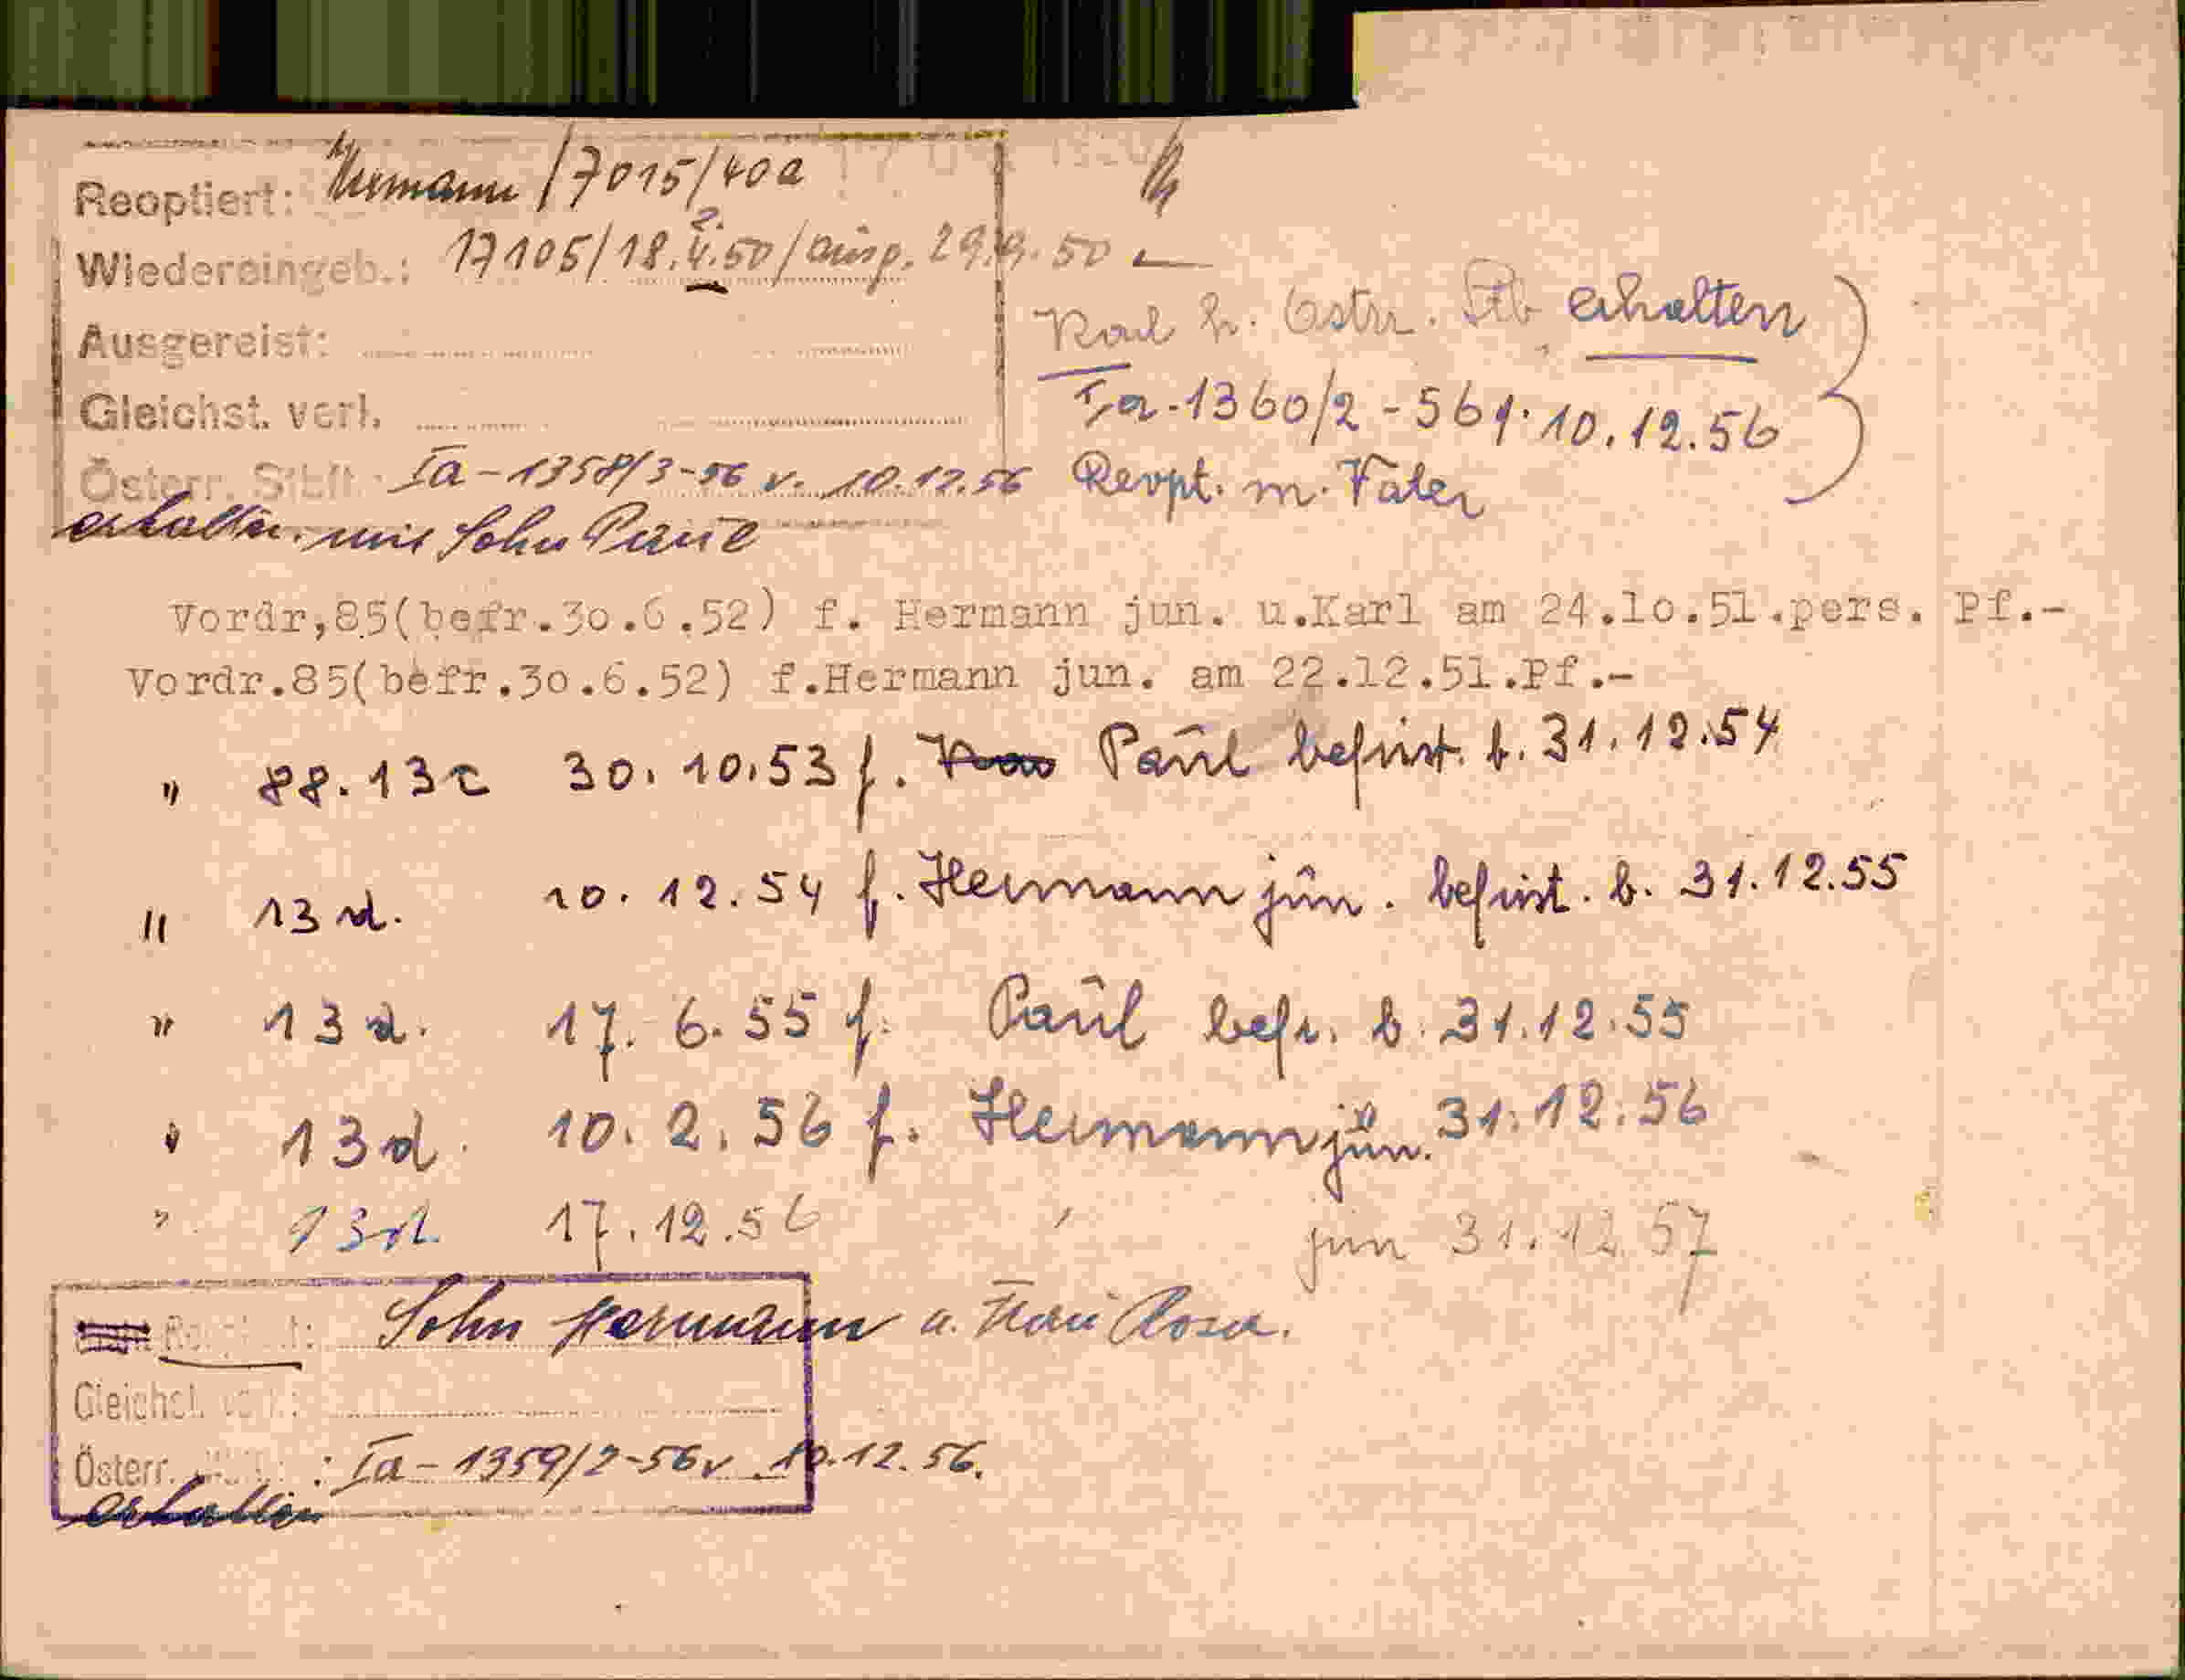 Reoptiert: Hermann /7015/40a
Wiedereingeb.: 17105/18.4.50/ausg. 29.9.50
2.
Ausgereist:
Gleichst. verl.
Österr. Stbft. Ia-1358/3-56 v. 10.12.56
erhalten mit Sohn Paul
Karl h. Östr. Stb erhalten
Ia-1360/2-56 v. 10.12.56
Reopt. m. Vater
Vordr,85(befr.30.6.52) f. Hermann jun. u.Karl am 24.lo.51.pers. Pf.-
Vordr.85(befr.30.6.52) f.Hermann jun. am 22.12.51.Pf.-
" 88.13c 30.10.53 f. Paul befrist. b. 31.12.54
" 13d. 10.12.54 f. Hermann jun. befrist. b. 31.12.55
" 13d. 17.6.55 f. Paul befr. b. 31.12.55
" 13d. 10.2.56 f. Hermann jun. 31.12.56
" 13d. 17.12.56 " jun 31.12.57
Sohn Hermann u. Frau Rosa.
Gleichst. verl.:
Österr. : Ia-1359/2-56 v. 10.12.56.
erhalten